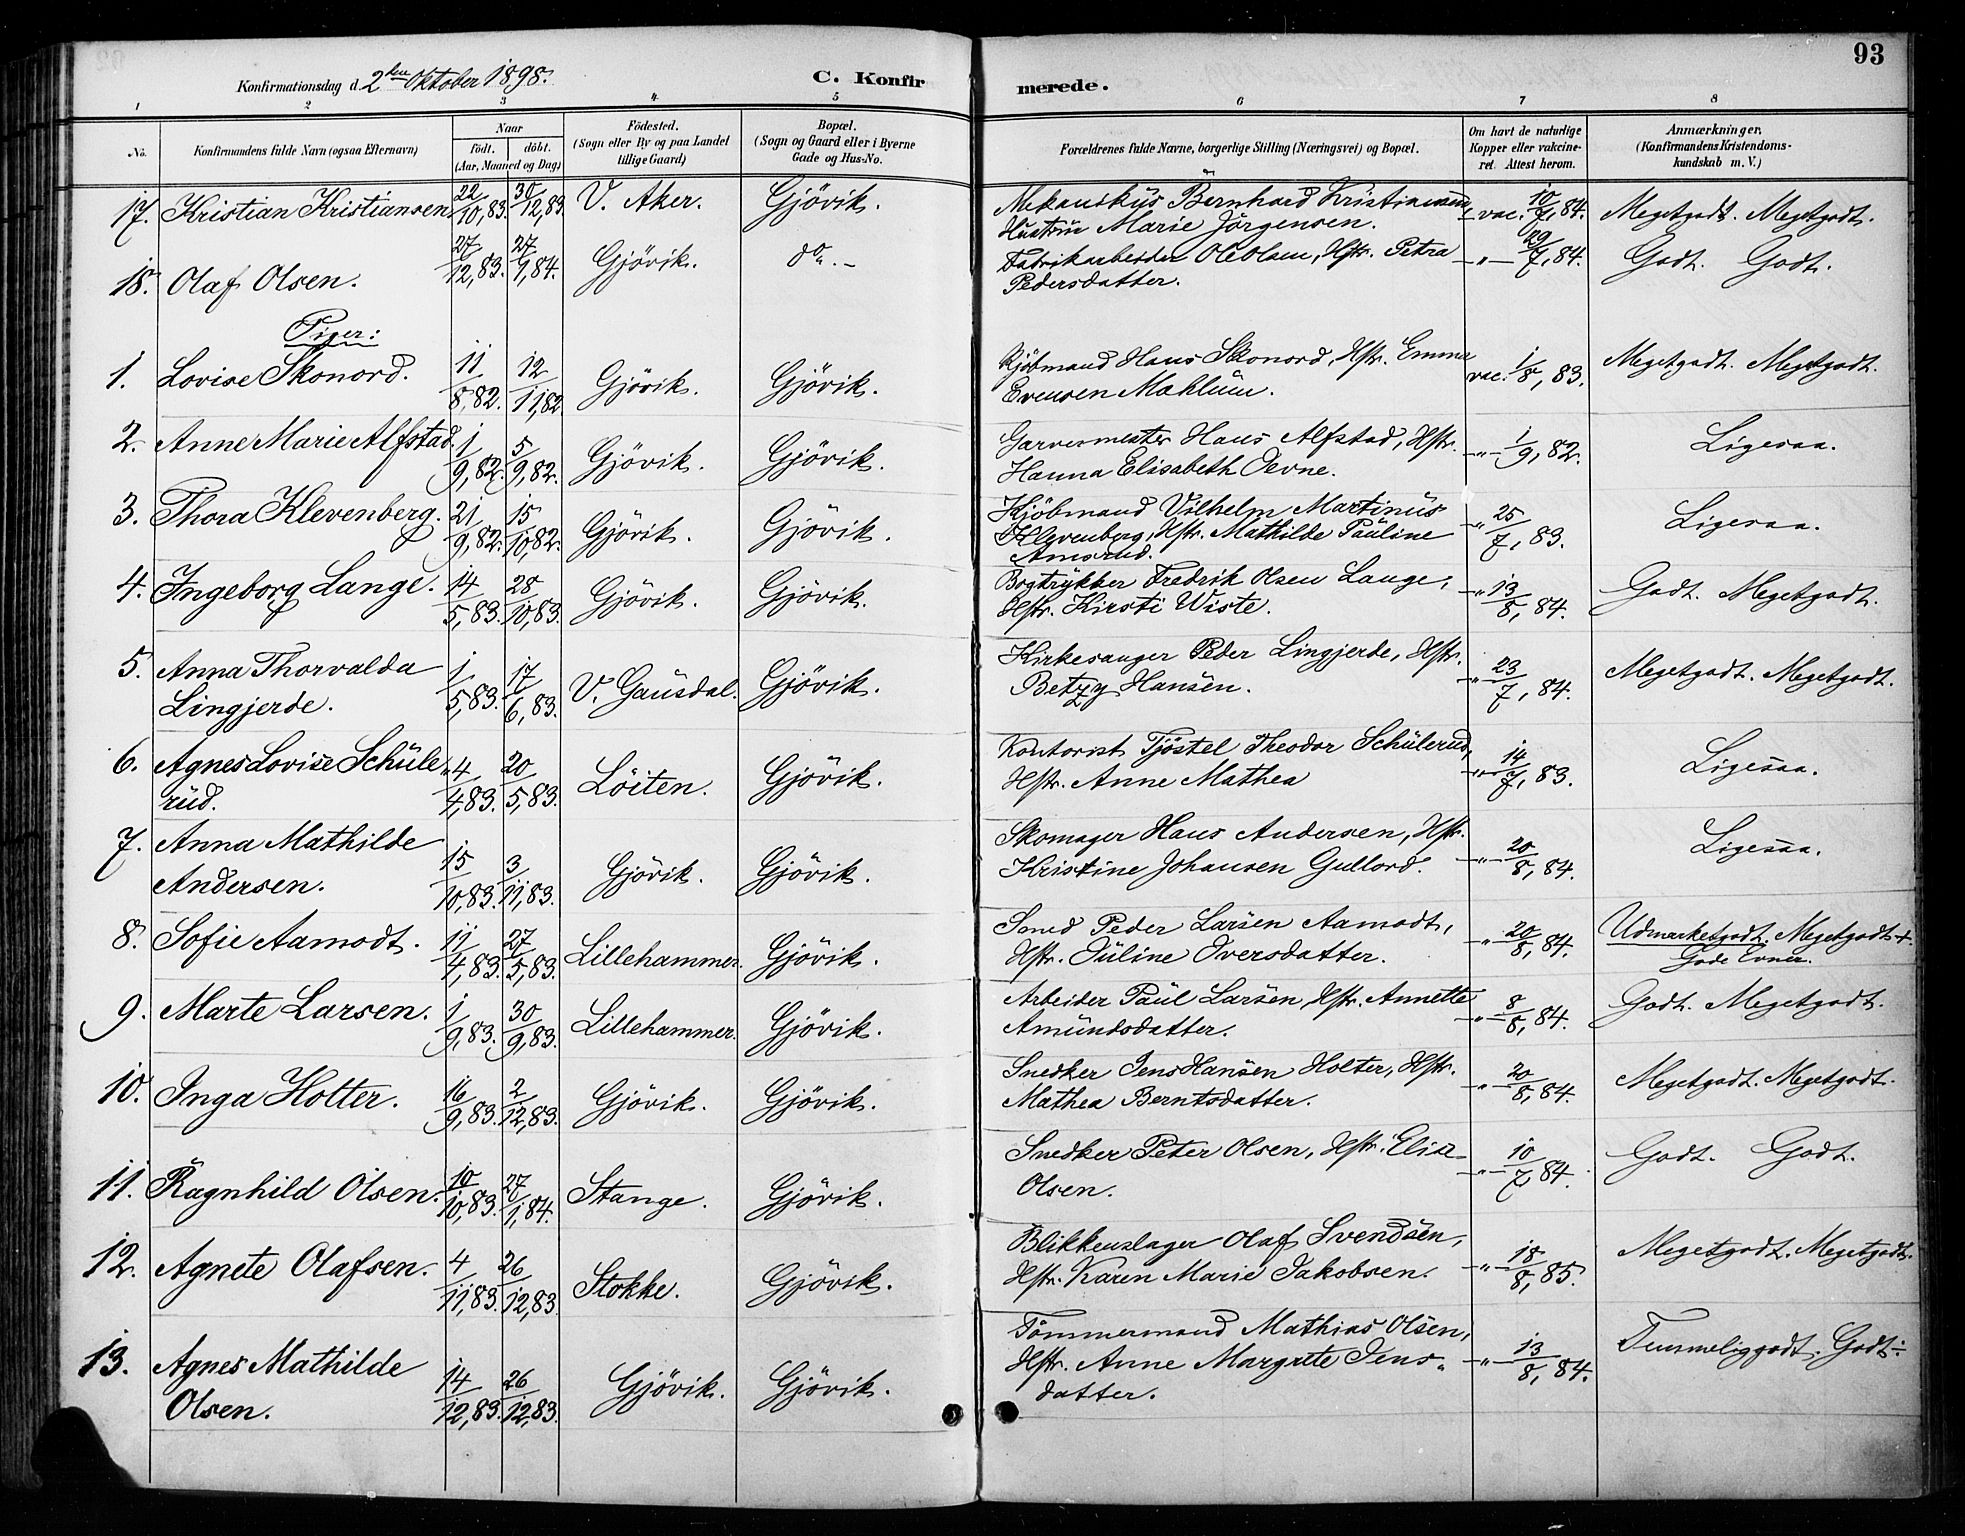 93
Konfirmationsdag d. 2den Oktober 1898.
C. Konfirmerede.
1 2 3 4 5 6 7 8
No.
Konfirmandens fulde Navn (ogsaa Efternavn)
Naar
födt. döbt.
(Aar, Maaned og Dag)
Födested.
(Sogn eller By og paa Landet
tillige Gaard)
Bopæl.
(Sogn og Gaard eller i Byerne
Gade og Hus-No.
Forældrenes fulde Navne, borgerlige Stilling (Næringsvei) og Bopæl.
Om havt de naturlige
Kopper eller vakcine-
ret. Attest herom.
Anmærkninger,
(Konfirmandens Kristendoms-
kundskab m. V.)
17. Kristian Kristiansen. 22/10, 83. 30/12, 83. V. Aker. Gjövik. Mekanikus Bernhard Kristiansen, vac. 10/7, 84. Megetgodt. Megetgodt.
Hustru Marie Jörgensen.
18. Olaf Olsen. 27/12, 83. 27/1, 84. Gjövik. do. - Fabrikarbeider Ole Olsen, Hstr. Petra -"- 29/7, 84. Godt. Godt.
Pedersdatter.
Piger:
1. Lovise Skonord. 11/8, 82. 12/11, 82. Gjövik. Gjövik. Kjöbmand Hans Skonord, Hstr. Emma vac. 1/8, 83. Megetgodt. Megetgodt.
Evensen Mahlum.
2. Anne Marie Alfstad. 1/9, 82. 5/9, 82. Gjövik. Gjövik. Garvermester Hans Alfstad, Hstr. -"- 1/9, 82. Ligesaa.
Hanna Elisabeth Tevne.
3. Thora Klevenberg. 21/9, 82. 15/10, 82. Gjövik. Gjövik. Kjöbmand Vilhelm Martinus -"- 25/7, 83. Ligesaa.
Klevenberg, Hstr. Mathilde Pauline
Amsrud.
4. Ingeborg Lange. 14/5, 83. 28/10, 83. Gjövik. Gjövik. Bogtrykker Fredrik Olsen Lange, -"- 13/8, 84. Godt. Megetgodt.
Hstr. Kirsti Wiste.
5. Anna Thorvalda 1/5, 83. 17/6, 83. V. Gausdal. Gjövik. Kirkesanger Peder Lingjerde, Hstr. -"- 23/7, 84. Megetgodt. Megetgodt.
Lingjerde. Betzy Hansen.
6. Agnes Lovise Schule- 4/4, 83. 20/5, 83. Löiten. Gjövik. Kontorist Tjöstel Theodor Schulerud, -"- 14/7, 83. Ligesaa.
rud. Hstr. Anne Mathea
7. Anna Mathilde 15/10, 83. 3/11, 83. Gjövik. Gjövik. Skomager Hans Andersen, Hstr. -"- 20/8, 84. Ligesaa.
Andersen. Kristine Johansen Gullord.
8. Sofie Aamodt. 11/4, 83. 27/5, 83. Lillehammer. Gjövik. Smed Peder Larsen Aamodt, -"- 20/8, 84. Udmerketgodt. Megetgodt+
Hstr. Juline Iversdatter. Gode Evner.
9. Marte Larsen. 1/9, 83. 30/9, 83. Lillehammer. Gjövik. Arbeider Paul Larsen, Hstr. Annette -"- 8/8, 84. Godt. Megetgodt.
Amundsdatter.
10. Inga Holter. 16/9, 83. 2/12, 83. Gjövik. Gjövik. Snedker Jens Hansen Holter, Hstr. -"- 20/8, 84. Megetgodt. Megetgodt.
Mathea Berntsdatter.
11. Ragnhild Olsen. 10/10, 83. 27/1, 84. Stange. Gjövik. Snedker Peter Olsen, Hstr. Elise -"- 10/7, 84. Godt. Godt.
Olsen.
12. Agnete Olafsen. 4/11, 83. 26/12, 83. Stokke. Gjövik. Blikkenslager Olaf Svendsen, -"- 18/8, 85. Megetgodt. Megetgodt.
Hstr. Karen Marie Jakobsen.
13. Agnes Mathilde 14/12, 83. 26/12, 83. Gjövik. Gjövik. Tömmermand Mathias Olsen, -"- 13/8, 84. Temmeliggodt. Godt÷
Olsen. Hstr. Anne Margrete Jens-
datter.